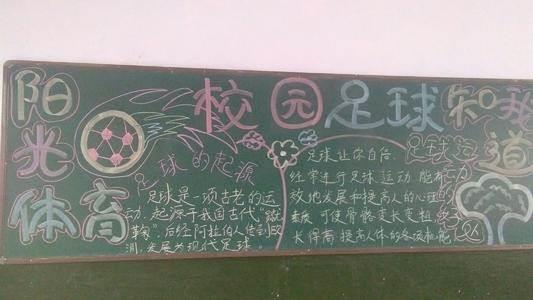 阳光体育
校园足球知我道
足球的起源
足球是一项古老的运
动.起源于我国古代"蹴
鞠".后经阿拉伯人传到欧
洲,发展为现代足球.
足球让你自信.
经常进行足球运动能有
效地发展和提高人的心理
素质可使骨骼变长变粗
长得高提高人体的各项机能
足球运动